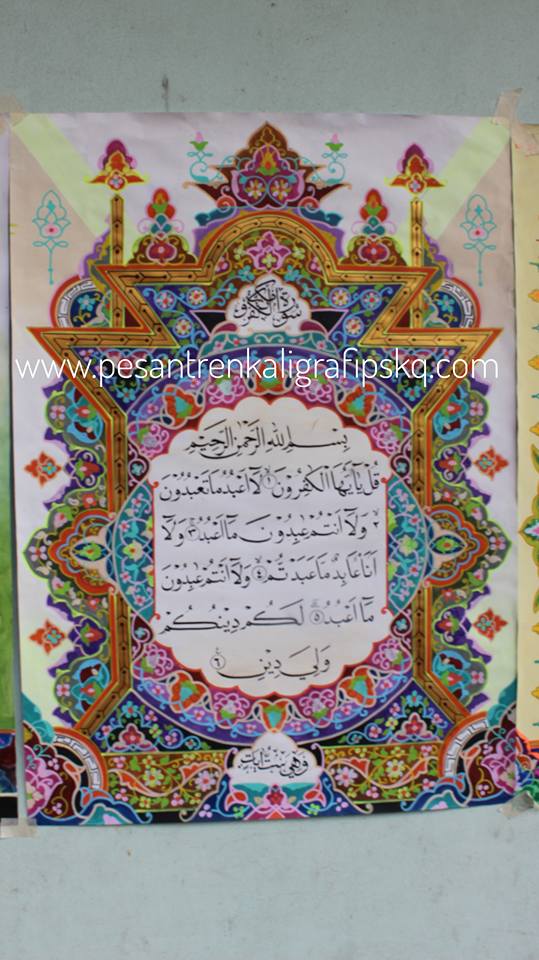 سُوْرَةُ الْكٰفِرُوْنَ
www.pesantrenkaligrafipskq.com
بِسْمِ اللهِ الرَّحْمٰنِ الرَّحِيْمِ
قُلْ يٰٓاَيُّهَا الْكٰفِرُوْنَ ١ لَآ اَعْبُدُ مَا تَعْبُدُوْنَ
٢ وَلَآ اَنْتُمْ عٰبِدُوْنَ مَآ اَعْبُدُ ٣ وَلَآ
اَنَا۠ عَابِدٌ مَّا عَبَدْتُّمْ ٤ وَلَآ اَنْتُمْ عٰبِدُوْنَ
مَآ اَعْبُدُ ٥ لَكُمْ دِيْنُكُمْ
وَلِيَ دِيْنِ ٦
وَهِيَ سِتُّ اٰيَاتٍ